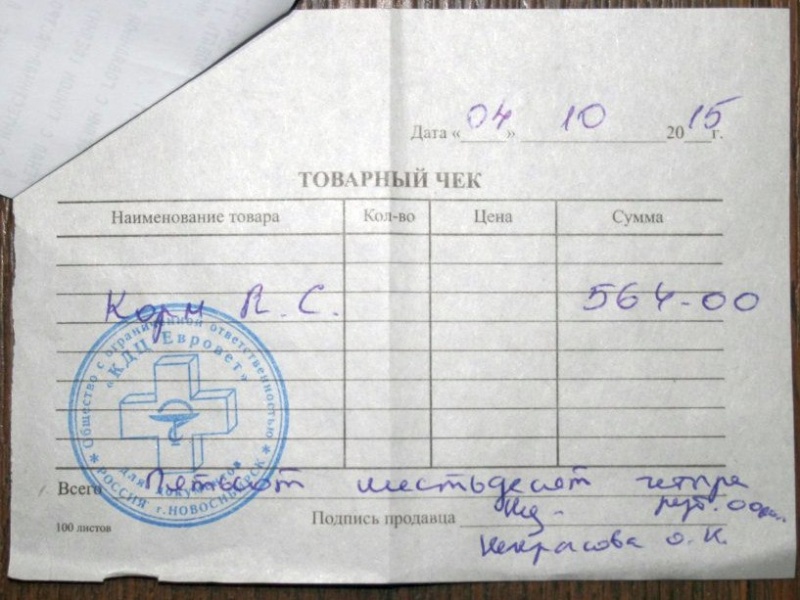 Дата «04» 10 2015г.
ТОВАРНЫЙ ЧЕК
Наименование товара Кол-во Цена Сумма
Корм R. C. 564-00
Общество с ограниченной ответственностью
«КДЦ Евровет»
для документов
РОССИЯ г.НОВОСИБИРСК
Всего Пятьсот шестьдесят четыре
руб. 00коп.
Подпись продавца
Некрасова О. К.
100 листов